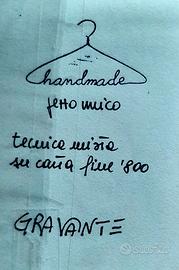 handmade
pezzo unico
tecnica mista
su carta fine '800
GRAVANTE